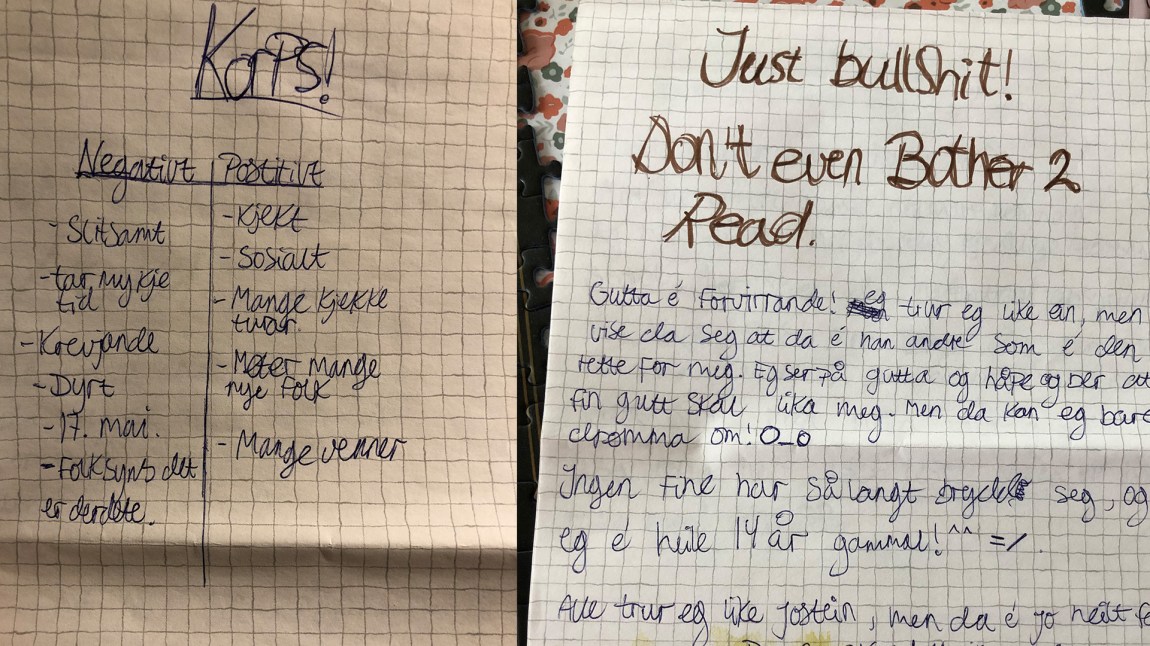 Korps!
Negativt
- Slitsamt
- tar mykje
tid
- Krevjande
- Dyrt
- 17. mai.
- Folk syns det
er
Postitivt
- Kjekt
- Sosialt
- Mange kjekke
turar.
- Møter mange
nye folk
- Mange venner
Just bullshit!
Don't even Bother 2
Read.
Gutta é forvirrande! eg trur eg like ein, men
vise da seg at da é han andre som é den
rette for meg. Eg ser på gutta og håpe og ber at
fin gutt skal lika meg. Men da kan eg bare
drømma om! O_o
Ingen fine har så langt seg, og
eg é heile 14 år gammal! ^^ =/.
Alle trur eg like Jostein, men da é jo heilt fe